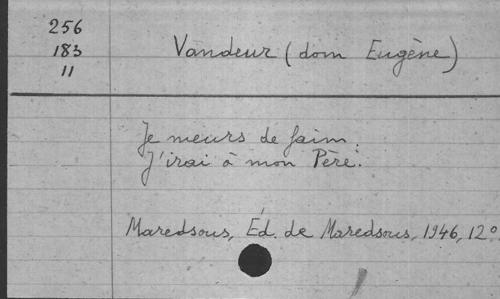 256
183
11
Vandeur (dom Eugène)
Je meurs de faim.
J'irai à mon Père.
Maredsous, Éd. de Maredsous, 1946, 12º